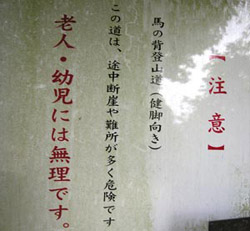 【注意】
馬の背登山道(健脚向き)
この道は、途中断崖や難所が多く危険です
老人・幼児には無理です。